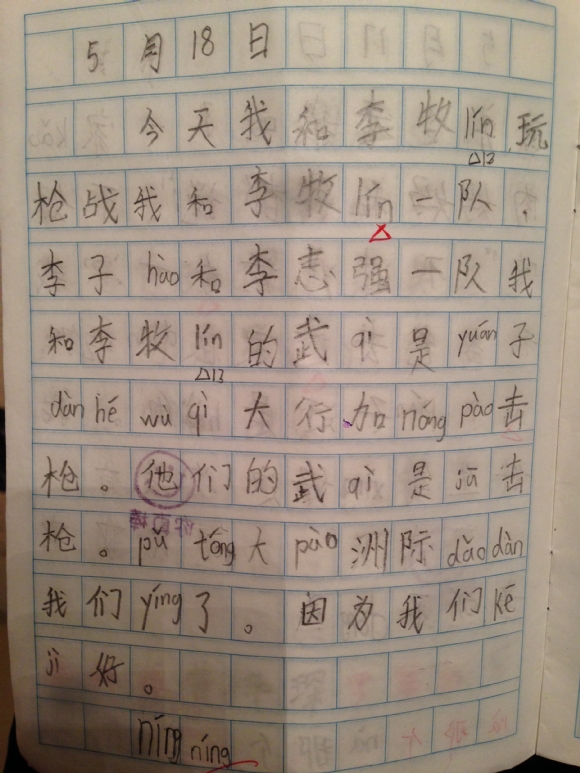 5月18日
今天我和李牧lín玩
枪战我和李牧lín一队，
李子hào和李志强一队我
和李牧lín的武qì是yuán子
dàn hé wù qì大行加nóng pào击
枪。他们的武qì是jū击
枪。pǔ tōng大pào洲际dǎo dàn
我们yíng了。因为我们kē
jì好。
níng níng